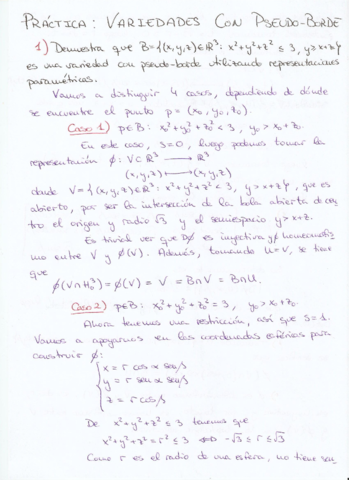 PRÁCTICA: VARIEDADES CON PSEUDO-BORDE
1) Demuestra que B={(x,y,z)∈ℝ³: x²+y²+z² ≤ 3, y≥x+z}
es una variedad con pseudo-borde utilizando representaciones
paramétricas.
Vamos a distinguir 4 casos, dependiendo de dónde
se encuentre el punto p = (x₀, y₀, z₀).
Caso 1) p∈B: x₀²+y₀²+z₀² < 3, y₀ > x₀+z₀.
En este caso, s=0, luego podemos tomar la
representación ϕ: V⊂ℝ³ → ℝ³
(x,y,z) ↦ (x,y,z)
donde V={(x,y,z)∈ℝ³: x²+y²+z² < 3, y > x+z}, que es
abierto, por ser la intersección de la bola abierta de cen
tro el origen y radio √3 y el semiespacio y > x+z.
Es trivial ver que Dϕ es inyectiva y ϕ homeomorfis
mo entre V y ϕ(V). Además, tomando U=V, se tiene
que
ϕ(V∩H₀³) = ϕ(V) = V = B∩V = B∩U.
Caso 2) p∈B: x₀²+y₀²+z₀² = 3, y₀ > x₀+z₀.
Ahora tenemos una restricción, así que s=1.
Vamos a apoyarnos en las coordenadas esféricas para
construir ϕ:
x = r cos α sen β
y = r sen α sen β
z = r cos β
De x²+y²+z² ≤ 3 tenemos que
x²+y²+z² = r² ≤ 3 ⟺ -√3 ≤ r ≤ √3
Como r es el radio de una esfera, no tiene sen